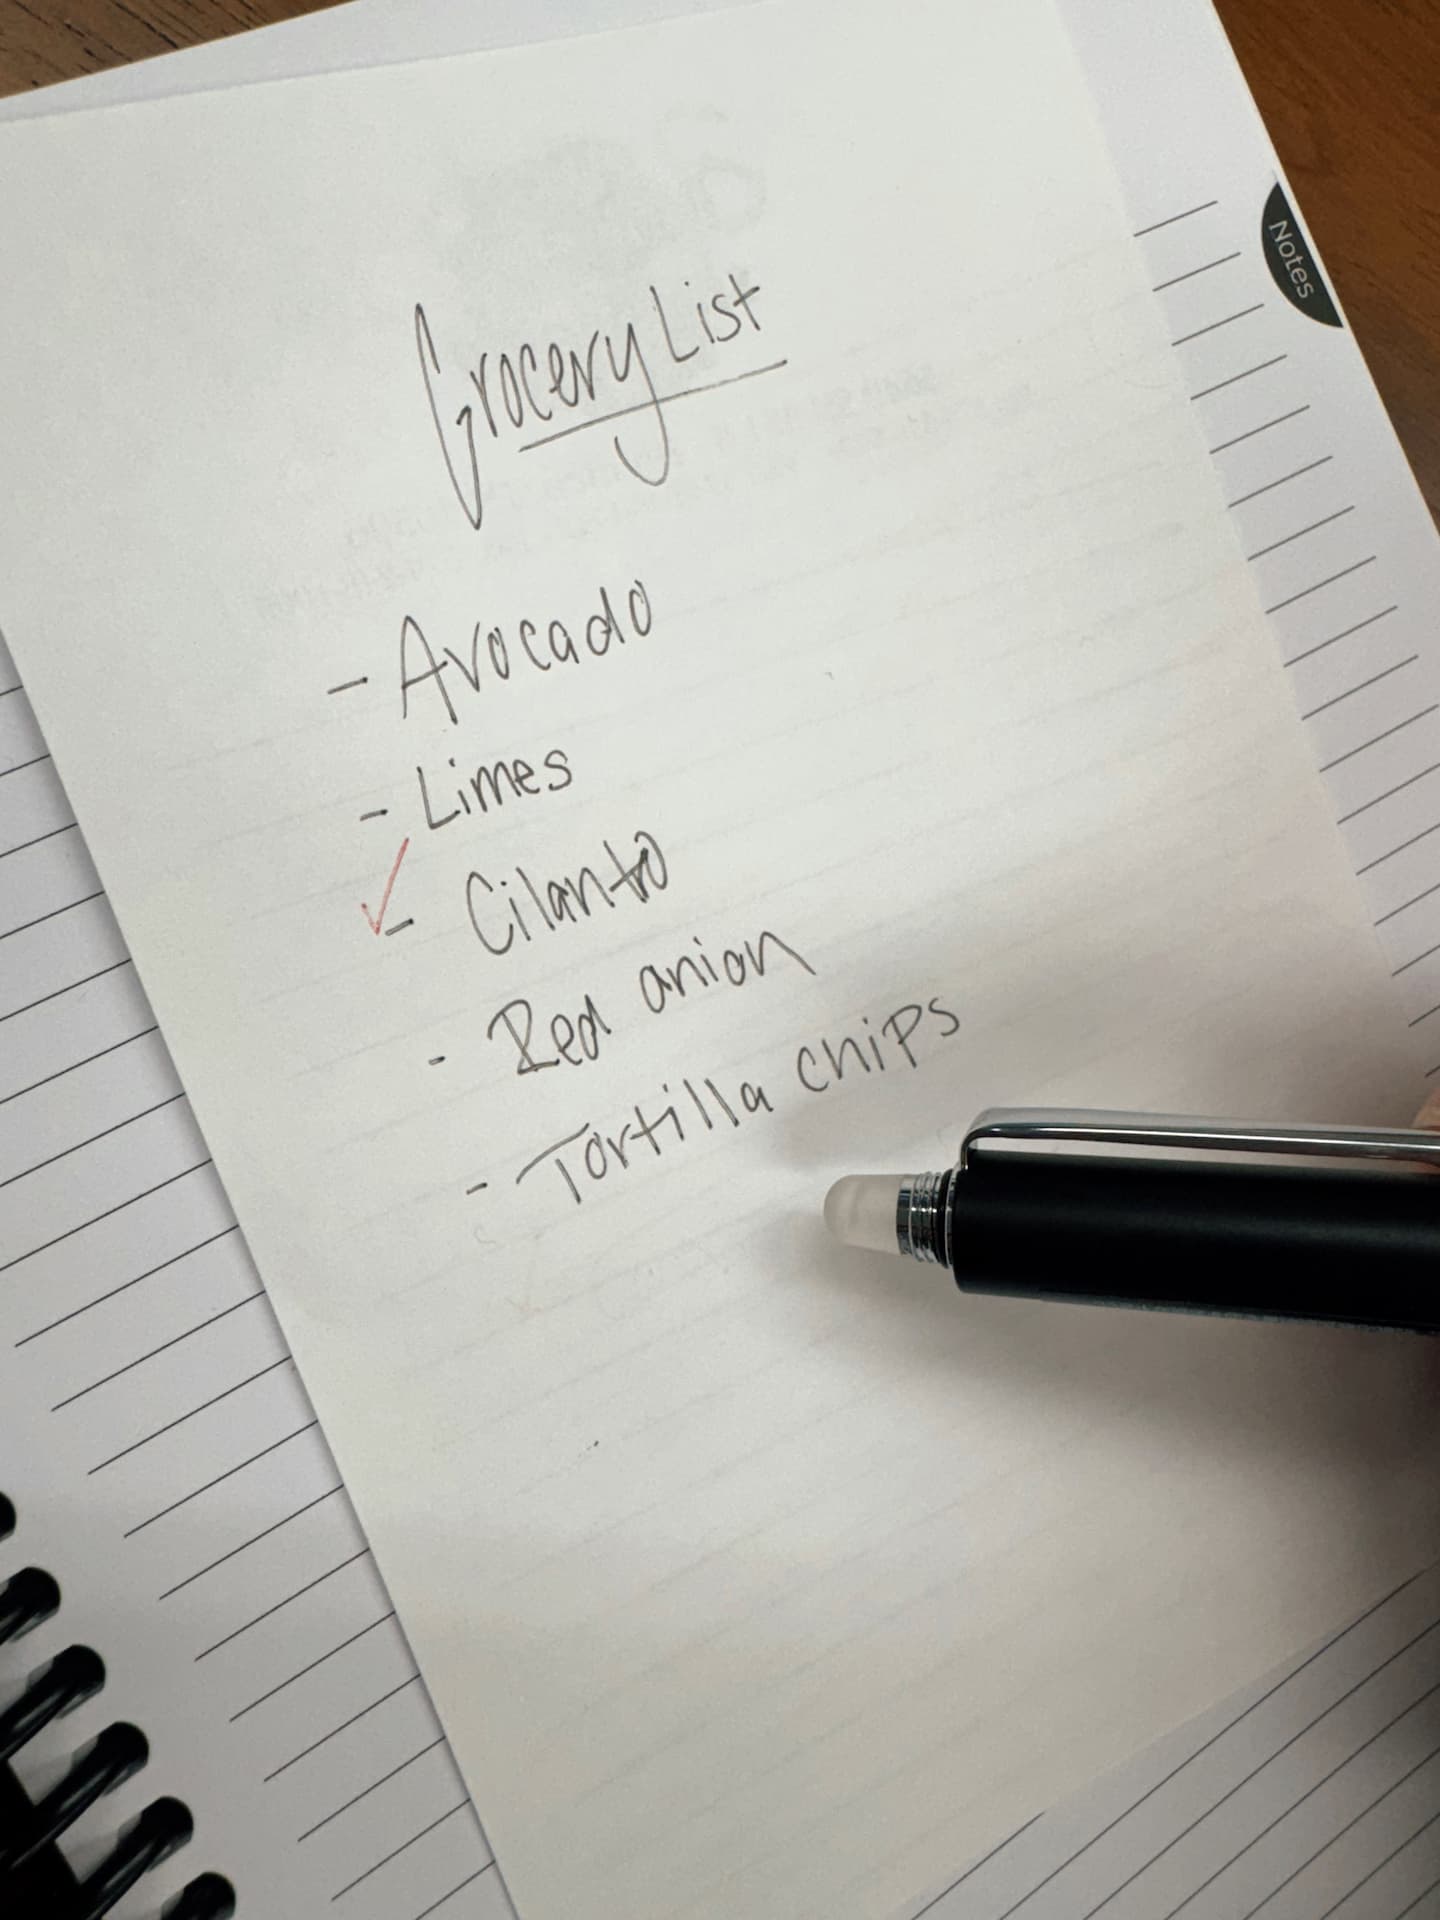 Grocery List
- Avocado
- Limes
- Cilantro
- Red onion
- Tortilla chips
Notes